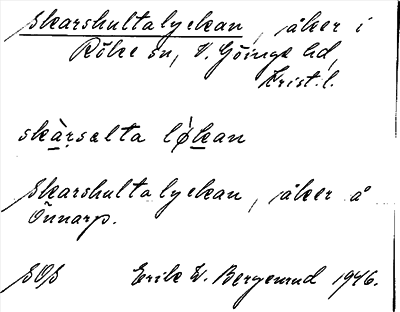 Skarshultalyckan, åker i
Röke sn, V. Göinge hd,
Krist. l.
skàrsəlta lo̍kan
Skarshultalyckan, åker å
Önnarp.
SOS Erik W. Bergenrud 1946.